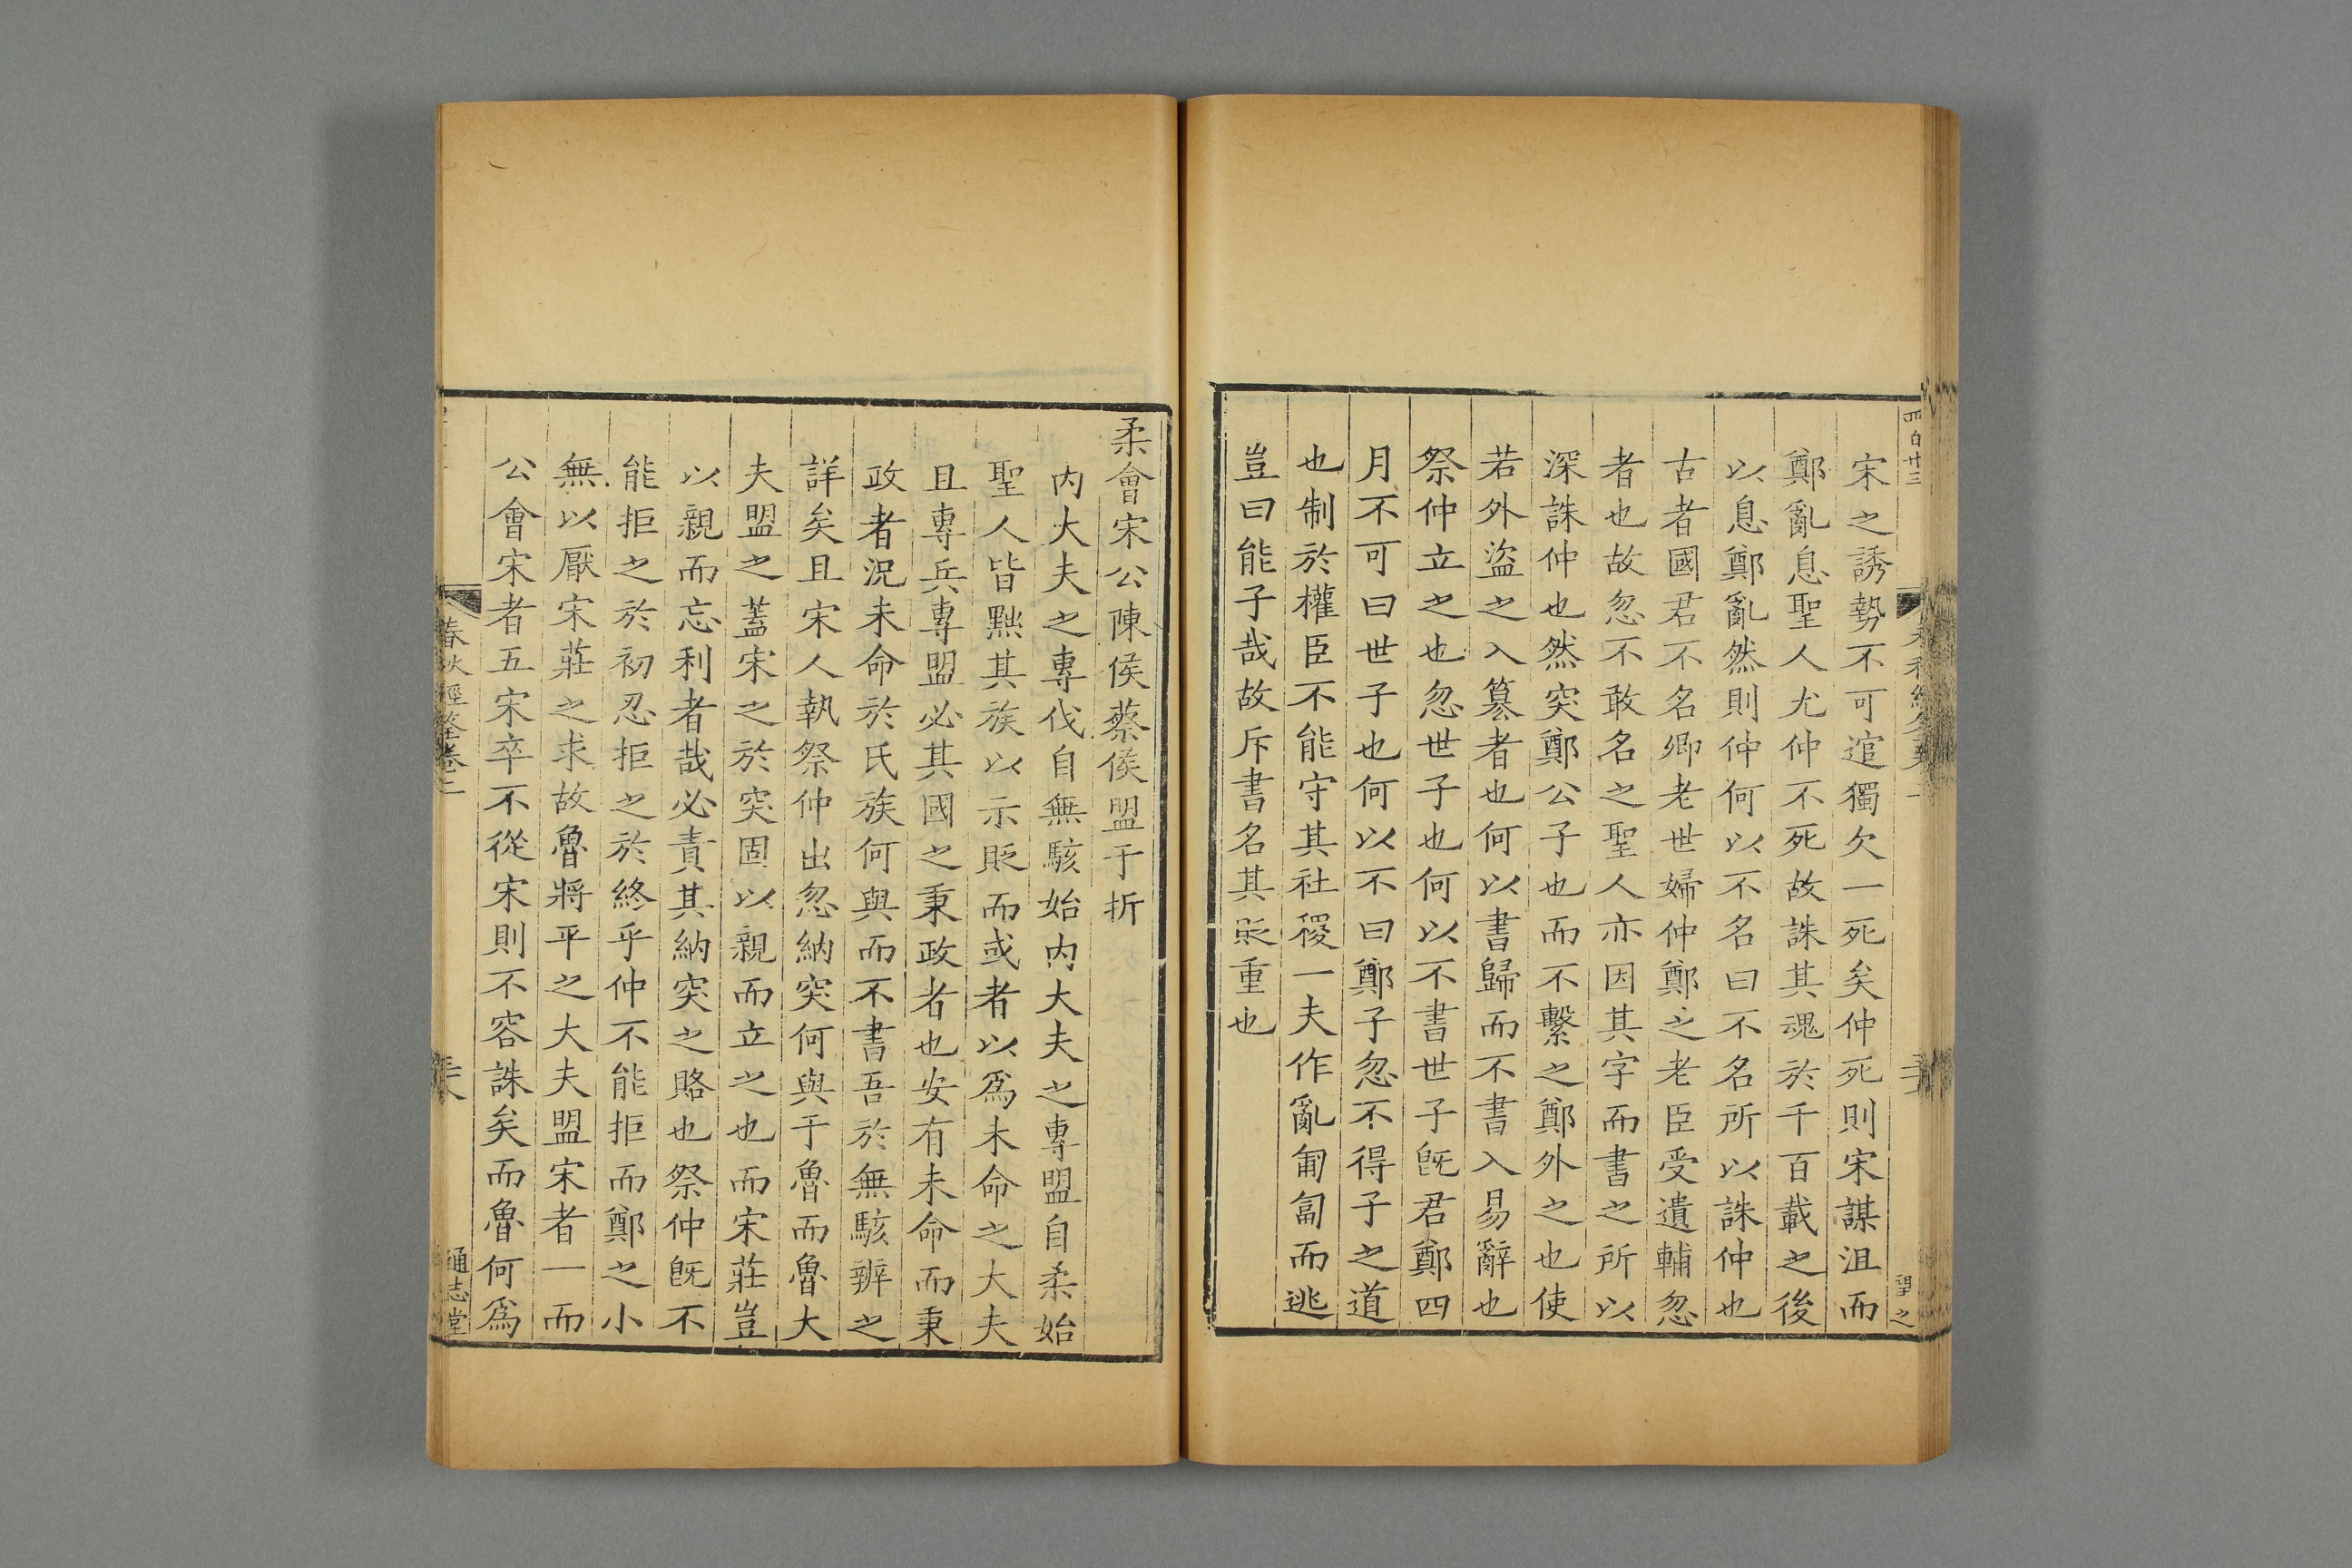 四百廿三
宋之誘勢不可逭獨欠一死矣仲死則宋謀沮而
鄭亂息聖人尤仲不死故誅其魂於千百載之後
以息鄭亂然則仲何以不名曰不名所以誅仲也
古者國君不名卿老世婦仲鄭之老臣受遺輔忽
者也故忽不敢名之聖人亦因其字而書之所以
深誅仲也然突鄭公子也而不繫之鄭外之也使
若外盜之入篡者也何以書歸而不書入易辭也
祭仲立之也忽世子也何以不書世子旣君鄭四
月不可曰世子也何以不曰鄭子忽不得子之道
也制於權臣不能守其社稷一夫作亂匍匐而逃
豈曰能子哉故斥書名其貶重也
柔會宋公陳侯蔡侯盟于折
内大夫之專伐自無駭始内大夫之專盟自柔始
聖人皆黜其族以示貶而或者以爲未命之大夫
且專兵專盟必其國之秉政者也安有未命而秉
政者況未命於氏族何與而不書吾於無駭辨之
詳矣且宋人執祭仲出忽納突何與于魯而魯大
夫盟之蓋宋之於突固以親而立之也而宋莊豈
以親而忘利者哉必責其納突之賂也祭仲旣不
能拒之於初忍拒之於終乎仲不能拒而鄭之小
無以厭宋莊之求故魯將平之大夫盟宋者一而
公會宋者五宋卒不從宋則不容誅矣而魯何爲
春秋經筌卷二
通志堂